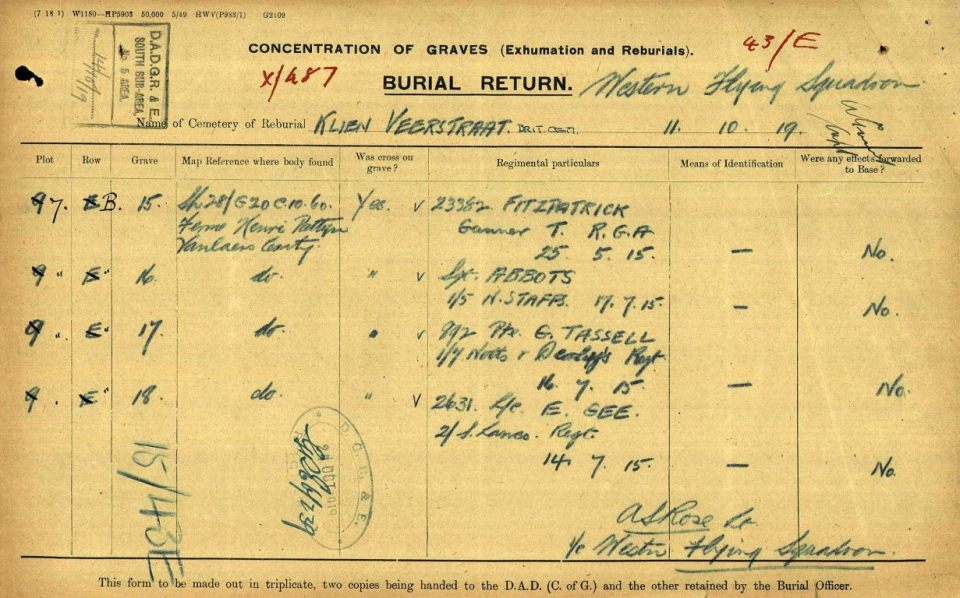 (7 18 1) W1180—HP5903 50,000 5/49 HWV(P983/1) G2109
D.A.D.G.R. & E.
SOUTH SUB-AREA,
No. 5 AREA.
CONCENTRATION OF GRAVES (Exhumation and Reburials).
43/E
X/487
BURIAL RETURN.
Western Flying Squadron
Name of Cemetery of Reburial KLIEN VEERSTRAAT. BRIT. CEM. 11. 10. 19.
Plot Row Grave Map Reference where body found Was cross on grave? Regimental particulars Means of Identification Were any effects forwarded to Base?
9 7. E B. 15. Sh. 28/G20 C.10.60. Yes. v 23382 FITZPATRICK
Ferme Henri Pattyn Gunner T. R.G.A
25. 5. 15. — No.
9 " E " 16. do. " v Sgt. ABBOTS
1/5 N. STAFFS. 17. 7. 15. — No.
9 " E " 17 do. " v 892 Pte G. TASSELL
1/7 Notts & Derby's Regt.
16. 7. 15. — No.
9 " E " 18. do. " v 2631 L/c E. GEE.
2/ S. Lancs. Regt.
14. 7. 15. — No.
15/43E
D. G. R. & E.
ASRose Lt.
i/c Westn Flying Squadron.
This form to be made out in triplicate, two copies being handed to the D.A.D. (C. of G.) and the other retained by the Burial Officer.